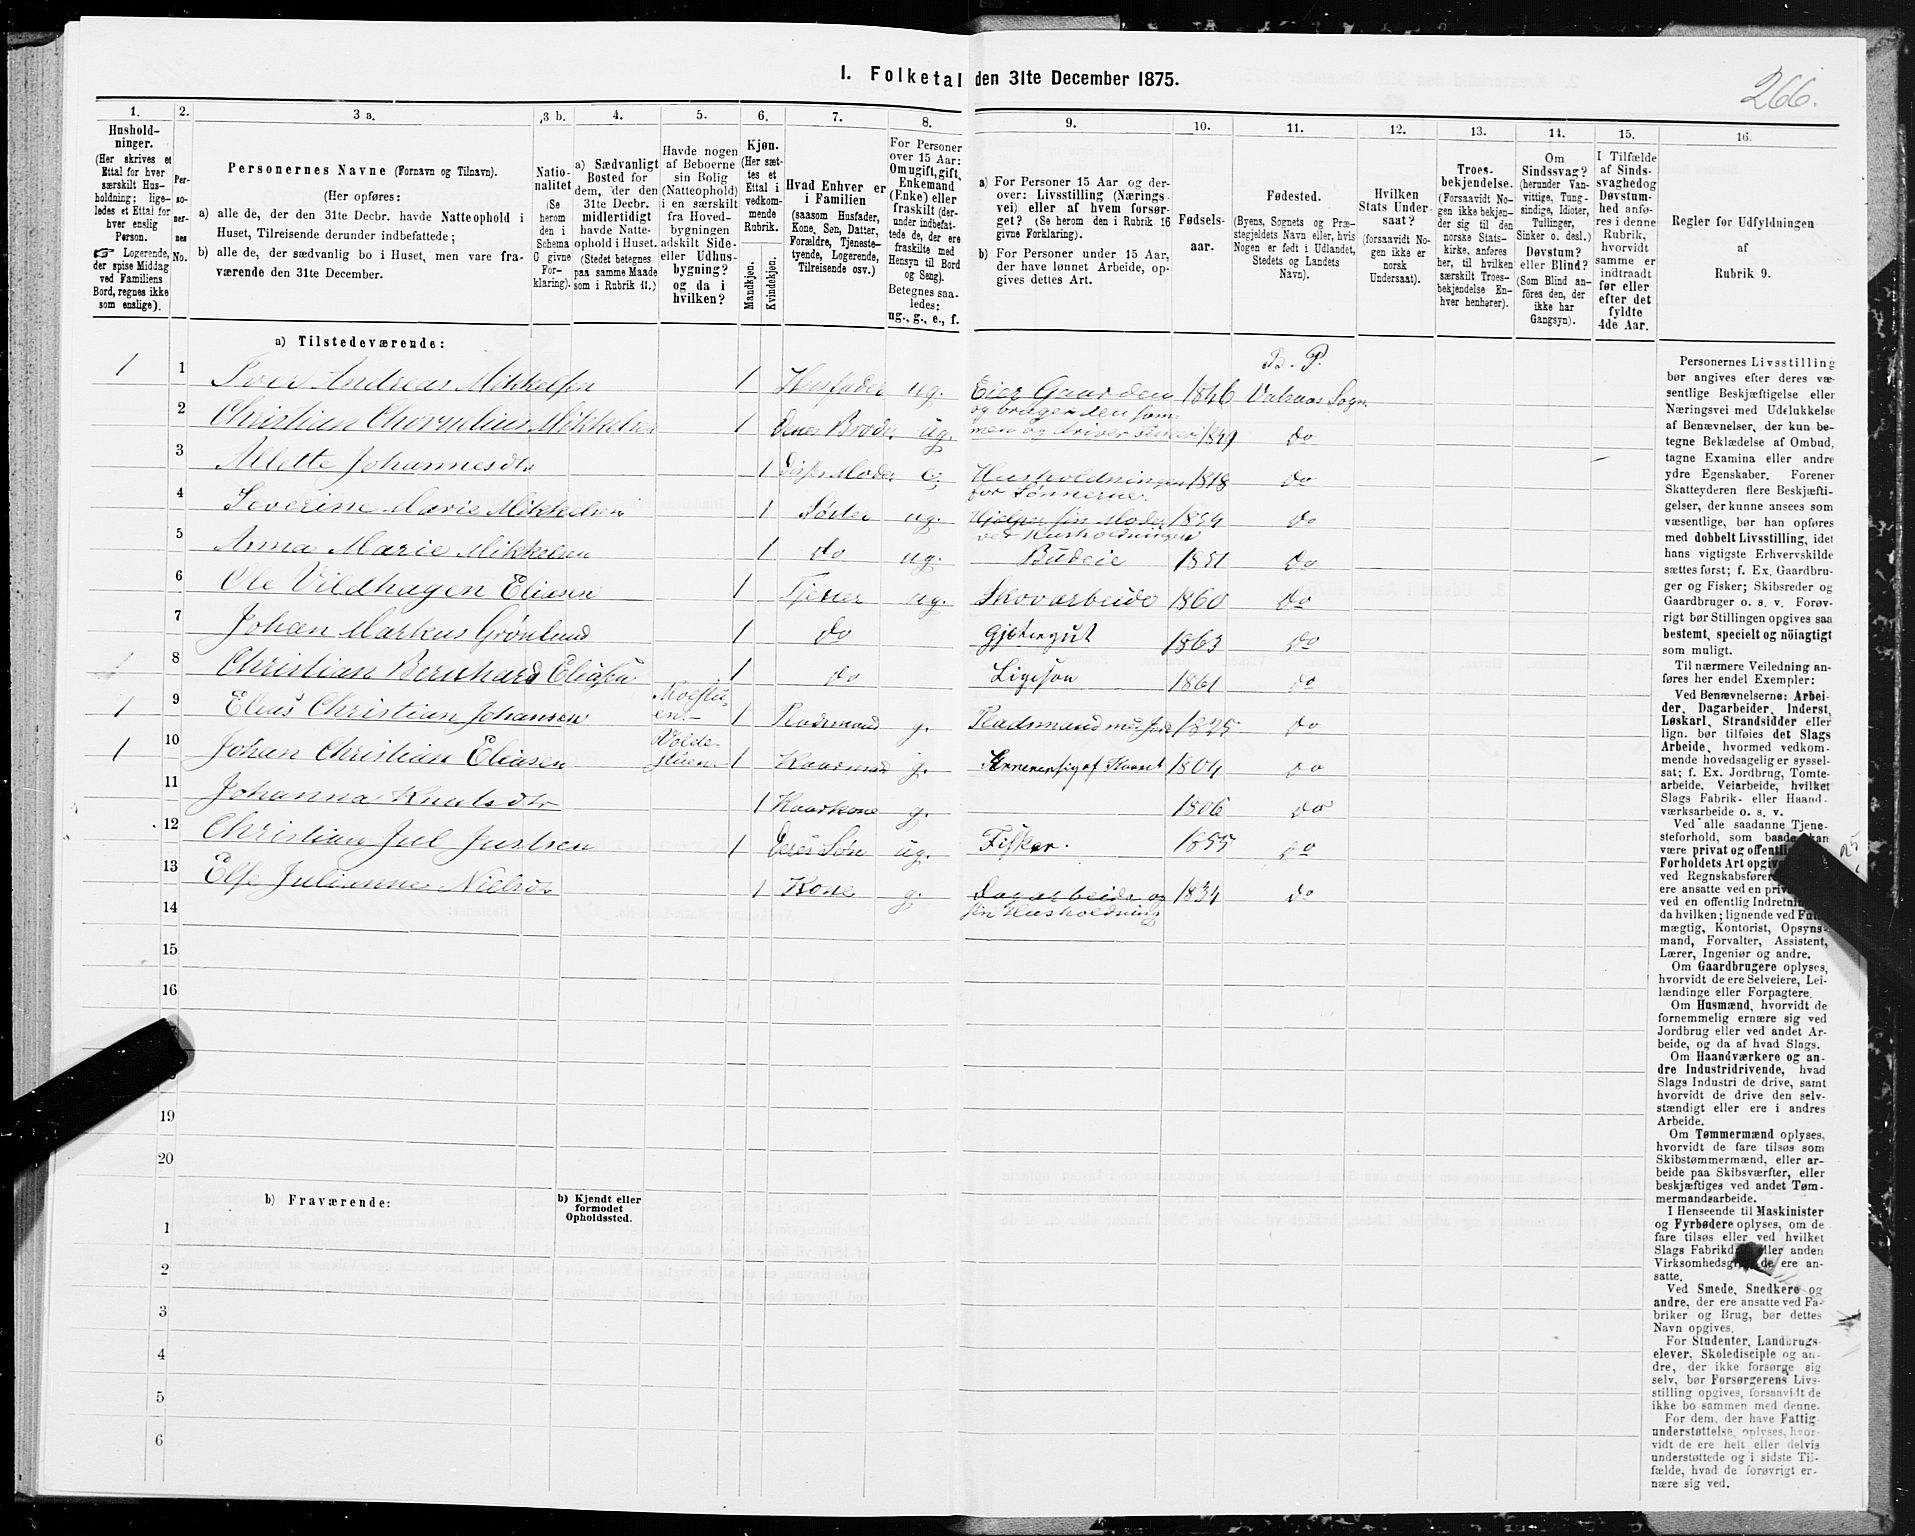 I. Folketal den 31te December 1875.
266.
1.
2.
3 a.
3 b.
4.
5.
6.
7.
8.
9.
10.
11.
12.
13.
14.
15.
16.
Hushold-
ninger.
(Her skrives et
Ettal for hver
særskilt Hus-
holdning; lige-
ledes et Ettal for
hver enslig
Person.
☞ Logerende,
der spise Middag
ved Familiens
Bord, regnes ikke
som enslige).
Per-
so-
ner-
nes
No.
Personernes Navne (Fornavn og Tilnavn).
(Her opføres:
a) alle de, der den 31te Decbr. havde Natteophold i
Huset, Tilreisende derunder indbefattede;
b) alle de, der sædvanlig bo i Huset, men vare fra-
værende den 31te December.
Natio-
nalitet
(Se
herom
den i
Schema
C givne
For-
klaring).
a) Sædvanligt
Bosted for
dem, der den
31te Decbr.
midlertidigt
havde Natte-
ophold i Huset.
(Stedet betegnes
paa samme Maade
som i Rubrik 11.)
Havde nogen
af Beboerne
sin Bolig
(Natteophold)
i en særskilt
fra Hoved-
bygningen
adskilt Side-
eller Udhus-
bygning?
og da i
hvilken?
Kjøn.
(Her sæt-
tes et
Ettal i
vedkom-
mende
Rubrik.
Mandkjøn.
Kvindekjøn.
Hvad Enhver er
i Familien
(saasom Husfader,
Kone, Søn, Datter,
Forældre, Tjeneste-
tyende, Logerende,
Tilreisende osv.)
For Personer
over 15 Aar:
Om ugift, gift,
Enkemand
(Enke) eller
fraskilt (der-
under indbefat-
tede de, der ere
fraskilte med
Hensyn til Bord
og Seng).
Betegnes saa-
ledes:
ug., g., e., f.
a) For Personer 15 Aar og der-
over: Livsstilling (Nærings-
vei) eller af hvem forsør-
get? (Se herom den i Rubrik 16
givne Forklaring).
b) For Personer under 15 Aar,
der have lønnet Arbeide, op-
gives dettes Art.
Fødsels-
aar.
Fødested.
(Byens, Sognets og Præ-
stegjeldets Navn eller, hvis
Nogen er født i Udlandet,
Stedets og Landets
Navn).
Hvilken
Stats Under-
saat?
(forsaavidt No-
gen ikke er
norsk
Undersaat).
Troes-
bekjendelse.
(Forsaavidt No-
gen ikke bekjen-
der sig til den
norske Stats-
kirke, anføres
her, til hvilken
særskilt Troes-
bekjendelse En-
hver henhører).
Om
Sindssvag?
(herunder Van-
vittige, Tung-
sindige, Idioter,
Tullinger,
Sinker o. desl.)
Døvstum?
eller Blind?
(Som Blind an-
føres den, der
ikke har
Gangsyn).
I Tilfælde
af Sinds-
svaghed og
Døvstum-
hed anfø-
res i denne
Rubrik,
hvorvidt
samme er
indtraadt
før eller
efter det
fyldte
4de Aar.
Regler for Udfyldningen
af
Rubrik 9.
a) Tilstedeværende:
B. P.
1 1 Iver Andreas Mikkelsen 1 Husfader ug. Eier Gaarden 1846 Valnæs Sogn
og bruger den sam-
2 Christian Chornelius Mikkelsen 1 Denes Broder ug. men og driver Fiskeri 1849 do
3 Alette Johannesdtr 1 Disses Moder e. Husholdningen 1818 do
for Sønnerne.
4 Severine Marie Mikkelsen 1 Søster ug. Hjelper sin Moder 1854 do
ved Husholdningen
5 Anna Marie Mikkelsen 1 do ug. Budeie 1851 do
6 Ole Vildhagen Eliasen 1 Tjener ug. Skovarbeide 1860 do
7 Johan Markus Grønlund 1 do Gjetergut 1863 do
1 8 Christian Bernhard Eliasen 1 do Ligesøn 1861 do
1 9 Elias Christian Johansen 1 Pladsmand g. Pladsmand med Jord 1825 do
1 10 Johan Christian Eliasen stuen 1 Kaarmand g. Ernerer sig af Kaaret 1804 do
11 Johanna Knutsdtr 1 Kaarkone g. 1806 do
12 Christian Jul Justsen 1 Deres Søn ug. Fisker. 1855 do
13 Else Julianne Nielsdtr 1 Kone g. Dagarbeide og 1834 do
sin Husholdning
14
15
16
19
20
b) Fraværende:
b) Kjendt eller
formodet
Opholdssted.
1
2
3
4
5
6
Personernes Livsstilling
bør angives efter deres væ-
sentlige Beskjæftigelse eller
Næringsvei med Udelukkelse
af Benævnelser, der kun be-
tegne Beklædelse af Ombud,
tagne Examina eller andre
ydre Egenskaber. Forener
Skatteyderen flere Beskjæfti-
gelser, der kunne ansees som
væsentlige, bør han opføres
med dobbelt Livsstilling, idet
hans vigtigste Erhvervskilde
sættes først; f. Ex. Gaardbru-
ger og Fisker; Skibsreder og
Gaardbruger o. s. v. Forøv-
rigt bør Stillingen opgives saa
bestemt, specielt og nöiagtigt
som muligt.
Til nærmere Veiledning an-
føres her endel Exempler:
Ved Benævnelserne: Arbei-
der, Dagarbeider, Inderst,
Løskarl, Strandsidder eller
lign. bør tilføies det Slags
Arbeide, hvormed vedkom-
mende hovedsagelig er syssel-
sat; f. Ex. Jordbrug, Tomte-
arbeide, Veiarbeide, hvilket
Slags Fabrik- eller Haand-
værksarbeide o. s. v.
Ved alle saadanne Tjene-
steforhold, som baade kan
være privat og offentlig
Forholdets Art opgives
ved Regnskabsførere
ere ansatte ved en priv
ved en offentlig Indretning
da hvilken; lignende ved Fuld-
mægtig, Kontorist, Opsyns-
mand, Forvalter, Assistent,
Lærer, Ingeniør og andre.
Om Gaardbrugere oplyses,
hvorvidt de ere Selveiere, Lei-
lændinge eller Forpagtere.
Om Husmænd, hvorvidt de
fornemmelig ernære sig ved
Jordbrug eller ved andet Ar-
beide, og da af hvad Slags.
Om Haandværkere og an-
dre Industridrivende, hvad
Slags Industri de drive, samt
hvorvidt de drive den selv-
stændigt eller ere i andres
Arbeide.
Om Tømmermænd oplyses,
hvorvidt de fare tilsøs som
Skibstømmermænd, eller ar-
beide paa Skibsværfter, eller
beskjæftiges ved andet Tøm-
mermandsarbeide.
I Henseende til Maskinister
og Fyrbødere oplyses, om de
fare tilsøs eller ved hvilket
Slags Fabrikdrift eller anden
Virksomhedsgren de ere an-
satte.
Ved Smede, Snedkere og
andre, der ere ansatte ved Fa-
briker og Brug, bør dettes
Navn opgives.
For Studenter, Landbrugs-
elever, Skoledisciple og an-
dre, der ikke forsørge sig
selv, bør Forsørgerens Livs-
stilling opgives, forsaavidt de
ikke bo sammen med denne.
For dem, der have Fattig-
understøttelse, oplyses, hvor-
vidt de ere helt eller delvis
understøttede og i sidste Til-
fælde, hvad de forøvrigt er-
nære sig ved.